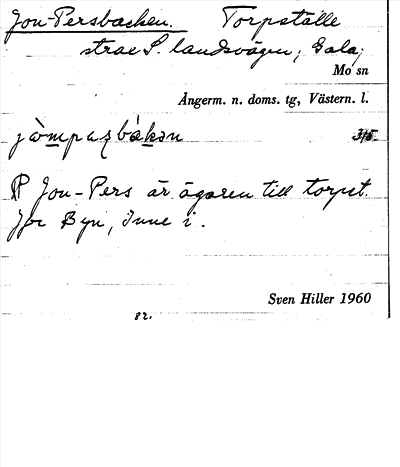 Jon-Persbacken. Torpställe
strax S. landsvägen, Gala,
Mo sn
Ångerm. n. doms. tg, Västern. l.
jòmpaʂbákən
P Jon-Pers är ägaren till torpst.
Jfr Byn, inne i.
Sven Hiller 1960
82.